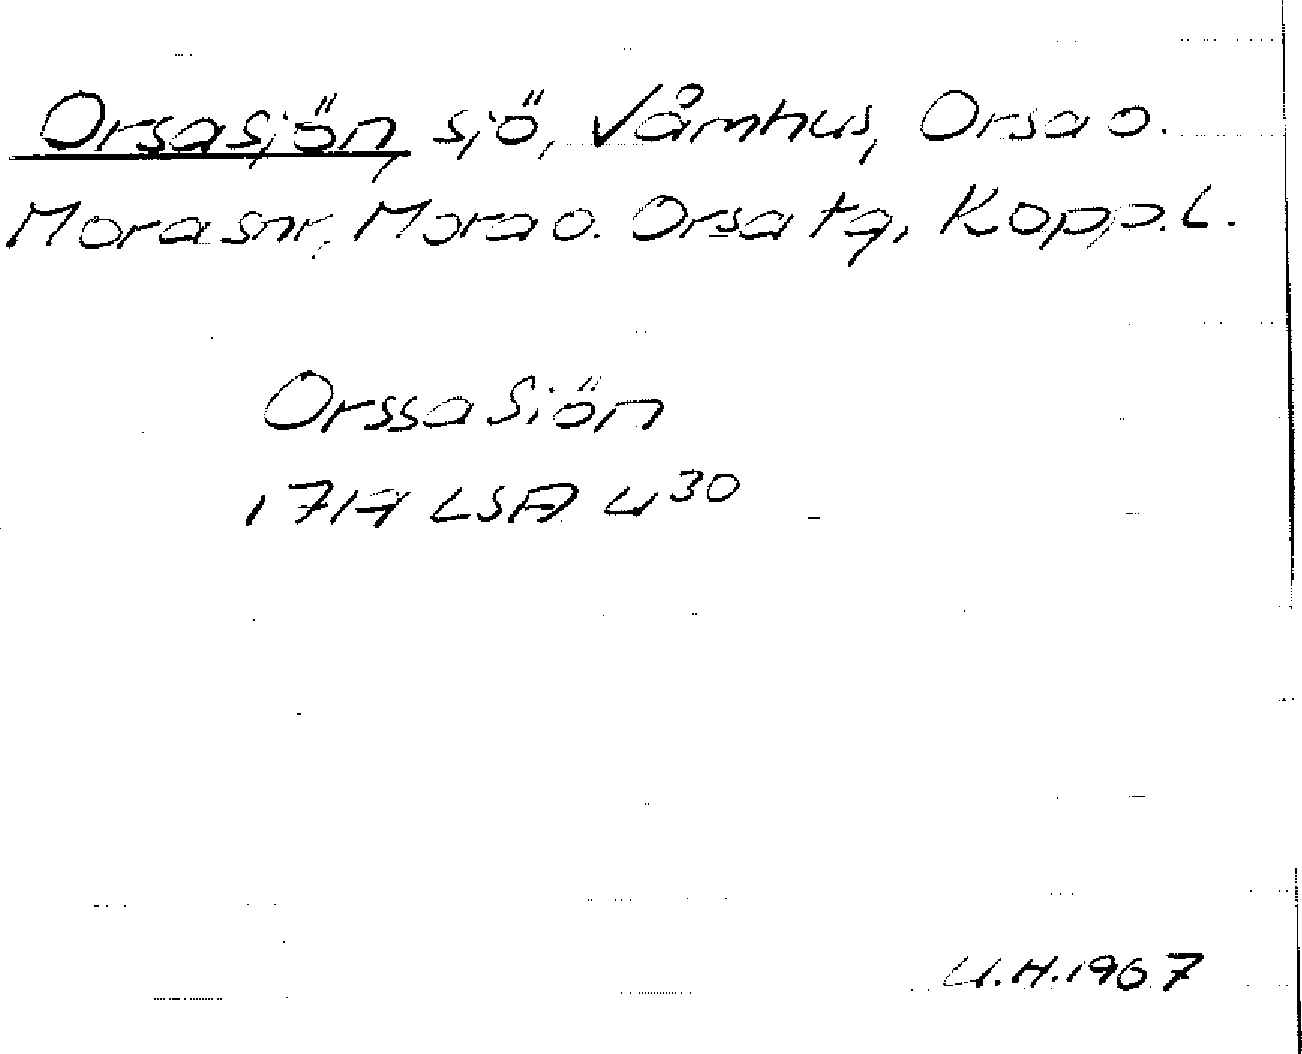 Orsasjön, sjö, Våmhus, Orsa o.
Mora snr, Mora o. Orsa tg, Kopp.L.
Orssa Siön
LSA U30
U.H.1967